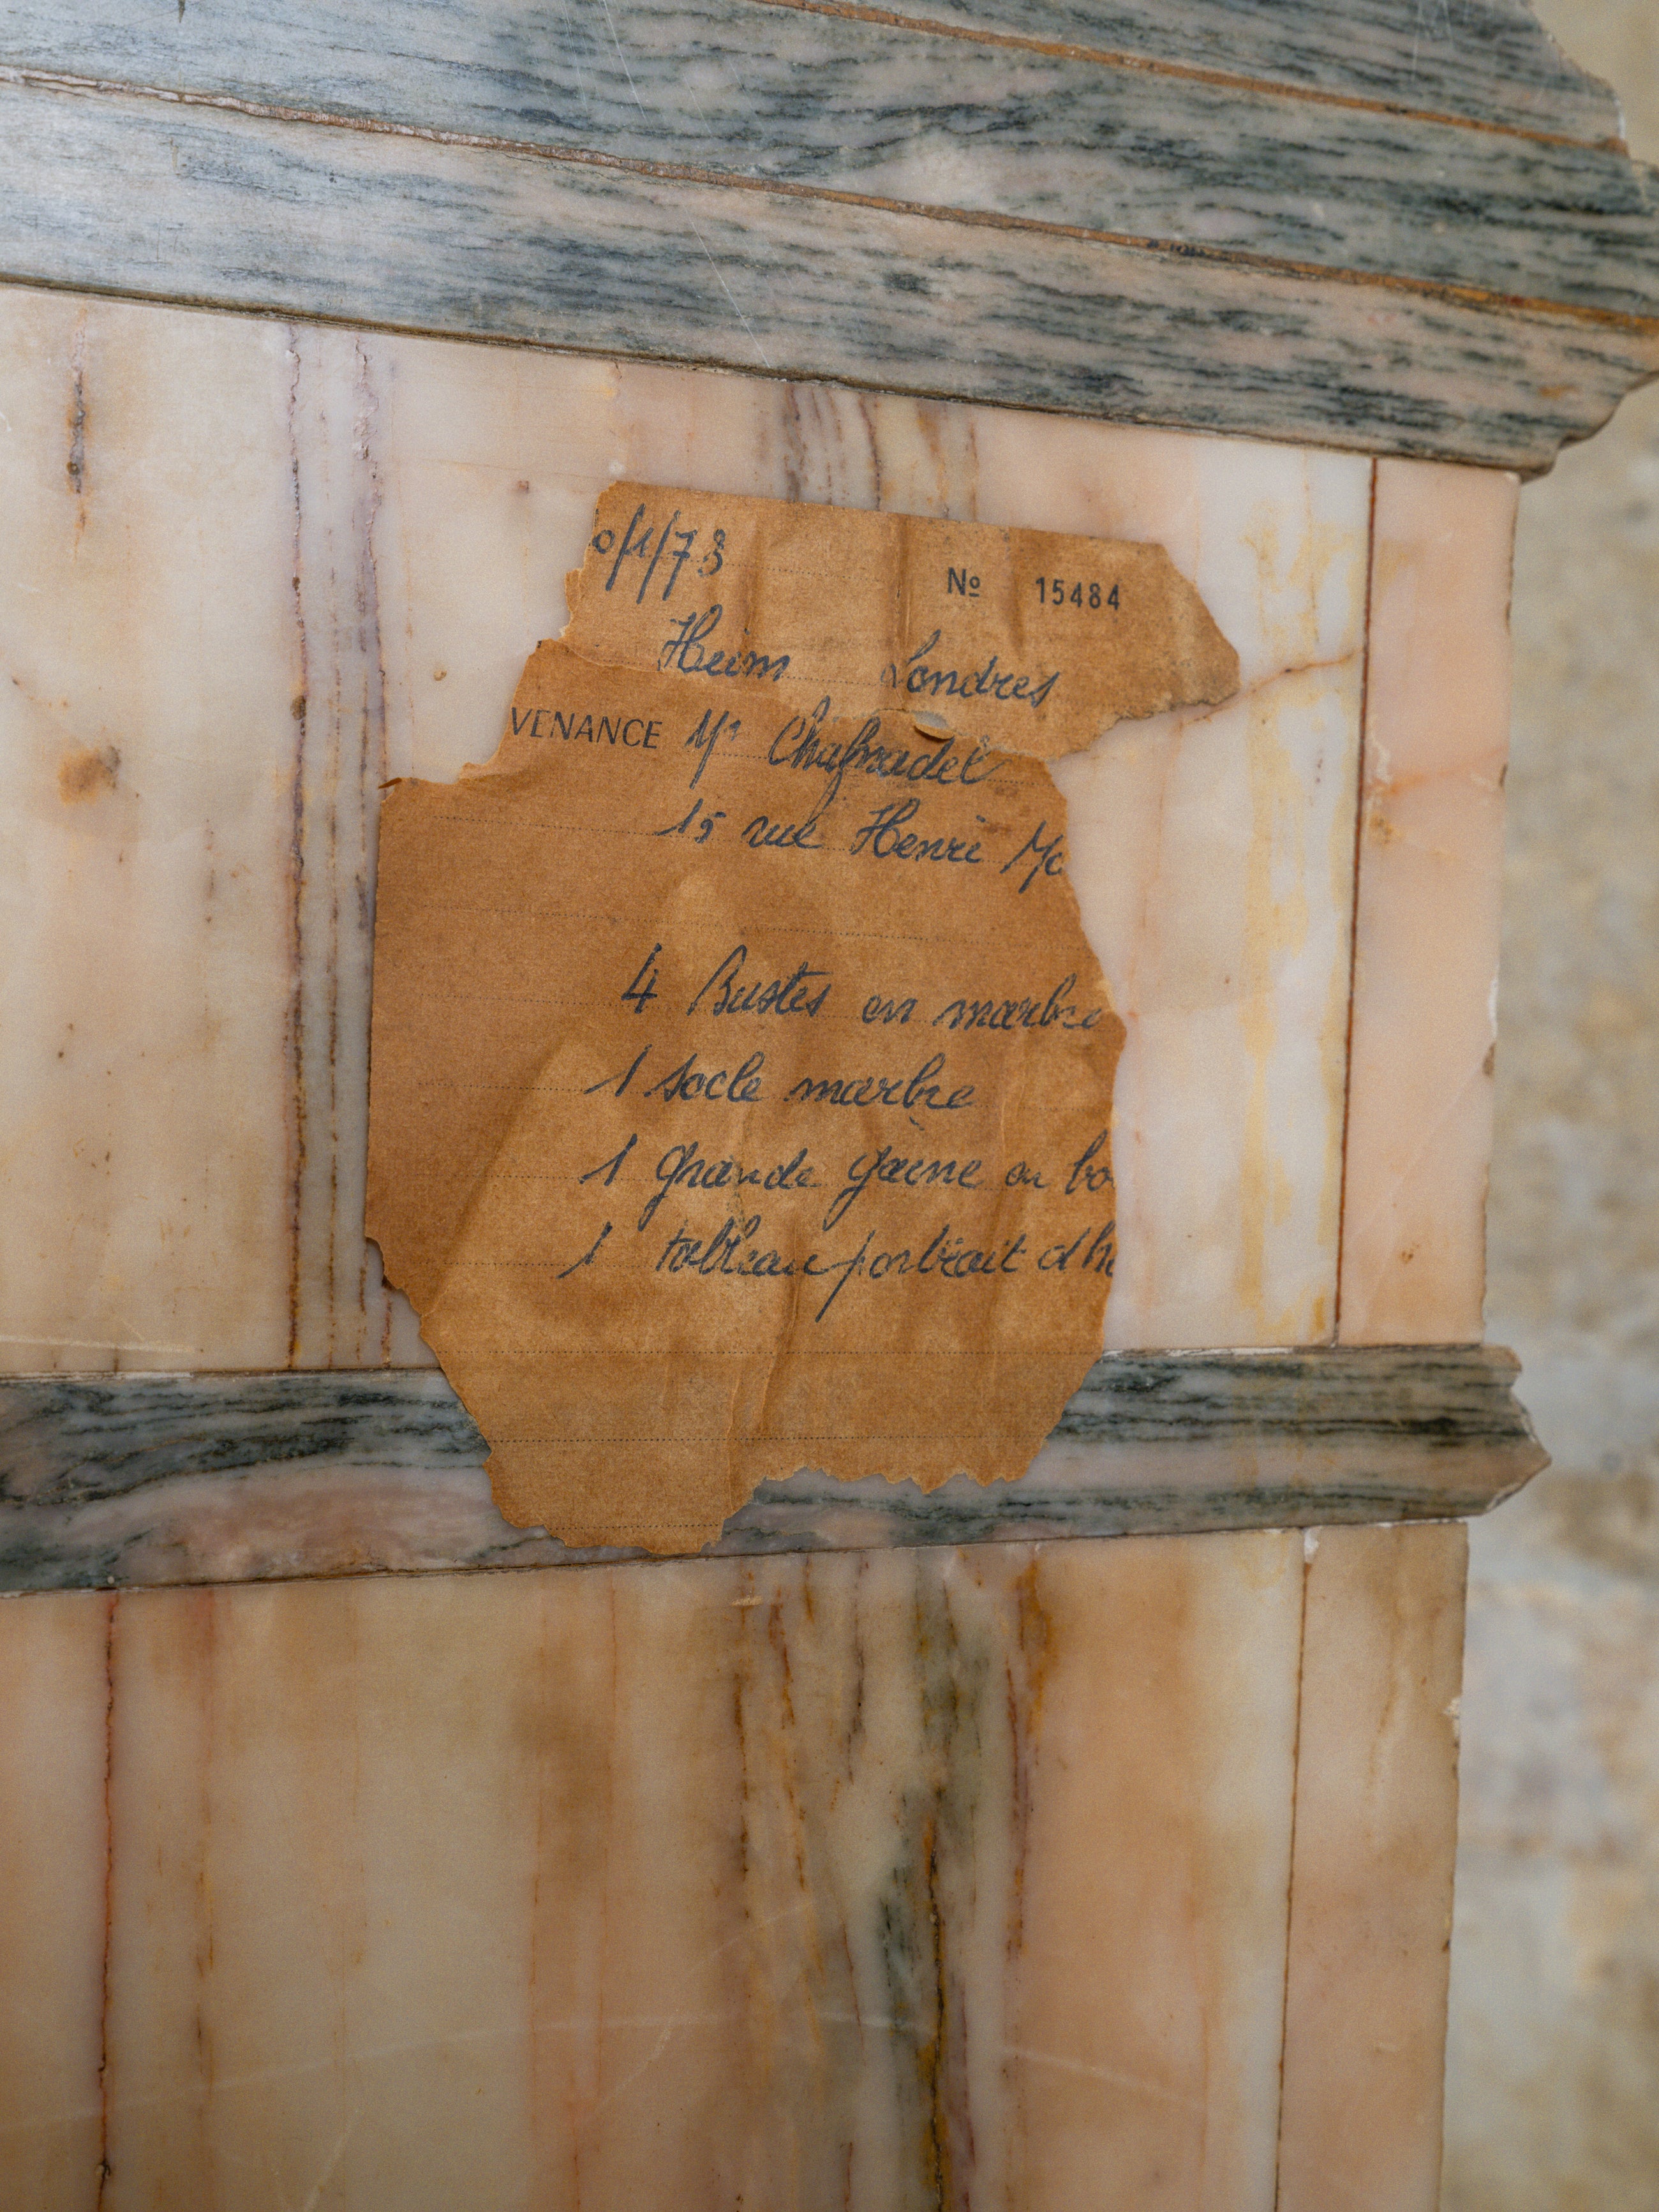 0/1/73
Nº 15484
Heim Londres
VENANCE Mr
15 rue Henri Mo
4 Bustes en marbre
1 socle marbre
1 grande gaine en bo
1 tableau portrait d'h